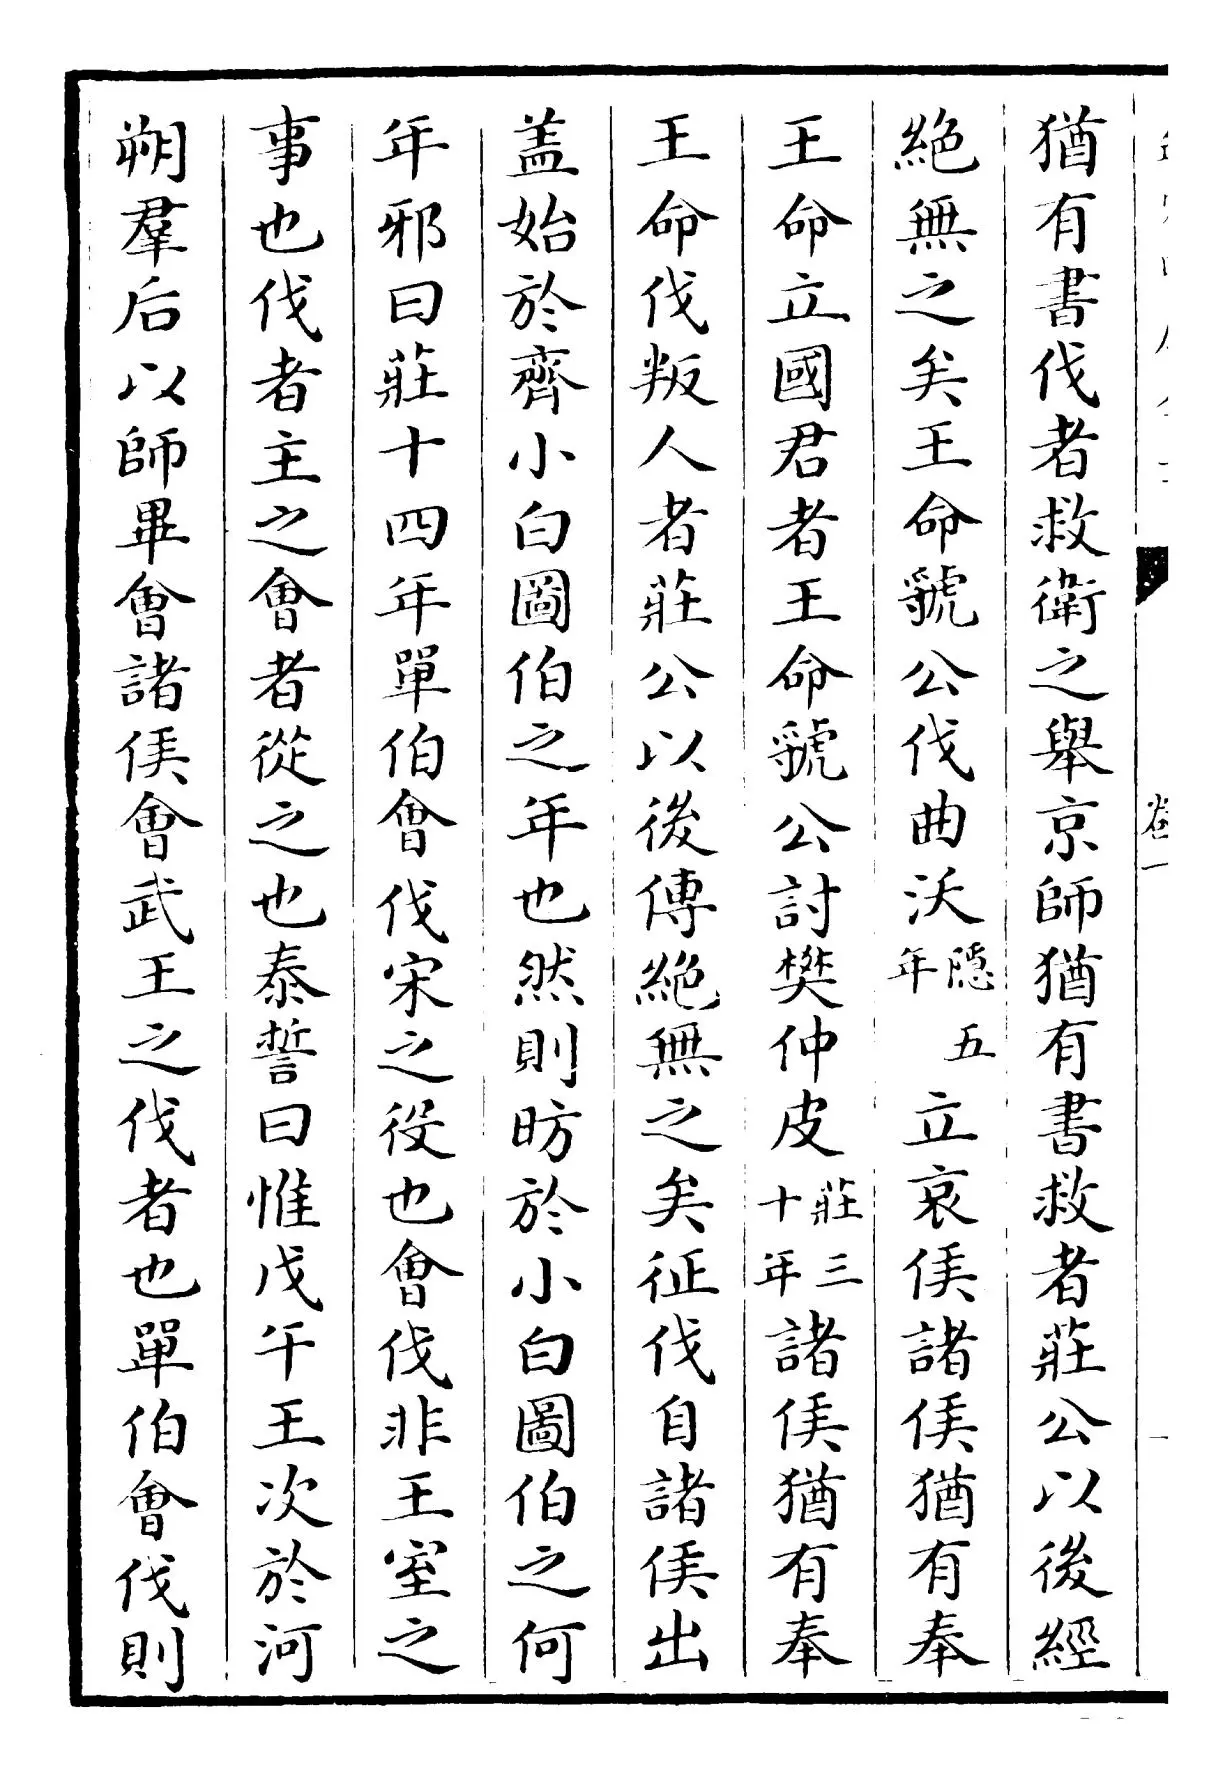 猶有書伐者救衛之舉京師猶有書救者莊公以後經
絶無之矣王命虢公伐曲沃隱五年立哀侯諸侯猶有奉
王命立國君者王命虢公討樊仲皮莊三十年諸侯猶有奉
王命伐叛人者莊公以後傳絶無之矣征伐自諸侯出
盖始於齊小白圖伯之年也然則昉於小白圖伯之何
年邪曰莊十四年單伯會伐宋之役也會伐非王室之
事也伐者主之會者從之也泰誓曰惟戊午王次於河
朔羣后以師畢會諸侯會武王之伐者也單伯會伐則